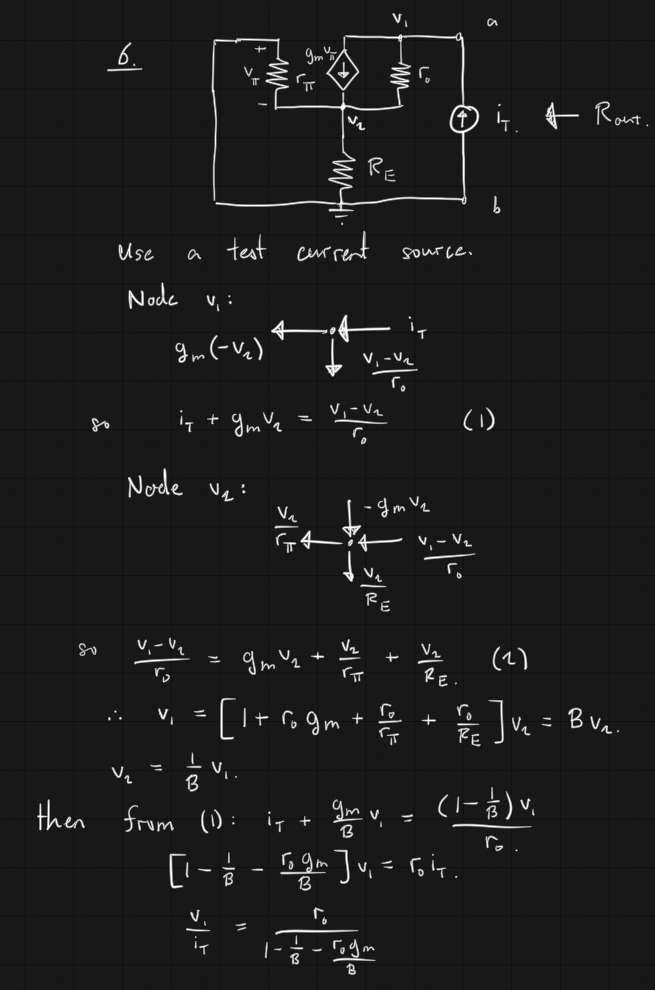 6.
v₁
a
+
g_m v_π
v_π
r_π
r_o
−
v₂
i_T.
R_out.
R_E
b
Use a test current source.
Node v₁:
i_T
g_m(-v₂)
(v₁-v₂)/r_o
so i_T + g_m v₂ = (v₁-v₂)/r_o (1)
Node v₂:
-g_m v₂
v₂/r_π
(v₁-v₂)/r_o
v₂/R_E
so (v₁-v₂)/r_o = g_m v₂ + v₂/r_π + v₂/R_E. (2)
∴ v₁ = [1 + r_o g_m + r_o/r_π + r_o/R_E] v₂ = B v₂.
v₂ = 1/B v₁.
then from (1): i_T + g_m/B v₁ = (1-1/B) v₁/r_o.
[1 - 1/B - r_o g_m/B] v₁ = r_o i_T.
v₁/i_T = r_o/(1 - 1/B - r_o g_m/B)